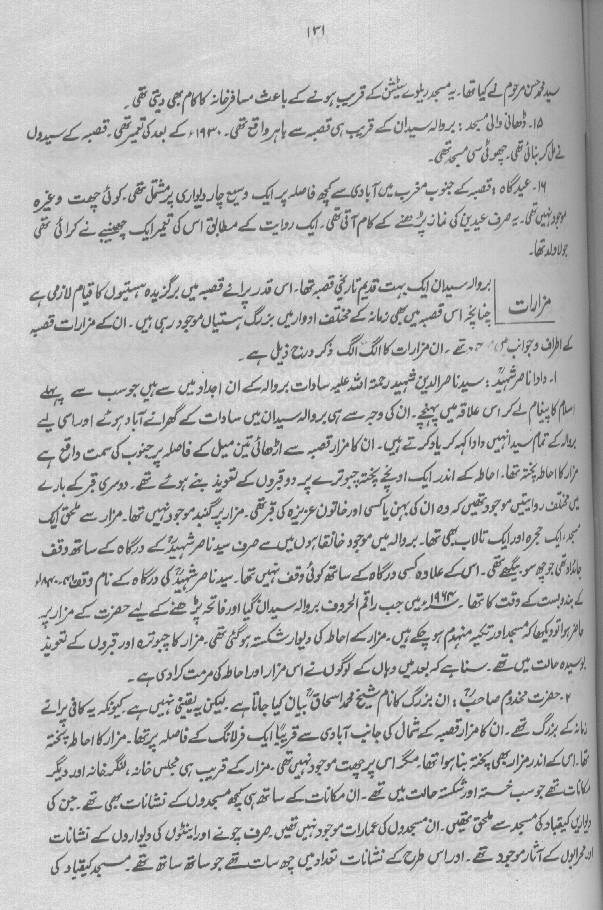 ۱۳۱
سید محمد حسن مرحوم نے کیا تھا۔ یہ مسجد ریلوے سٹیشن کے قریب ہونے کے باعث مسافر خانہ کا کام بھی دیتی تھی۔
۱۵۔ ڈھانی والی مسجد: بروالہ سیدان کے قریب ہی قصبہ سے باہر واقع تھی۔ ۱۹۳۰ء کے بعد کی تعمیر تھی۔ قصبہ کے سیدوں
نے مل کر بنائی تھی۔ چھوٹی سی مسجد تھی۔
۱۶۔ عیدگاہ: قصبہ کے جنوب مغرب میں آبادی سے کچھ فاصلہ پر ایک وسیع چار دیواری پر مشتمل تھی۔ کوئی چھت وغیرہ
موجود نہیں تھی۔ یہ صرف عیدین کی نماز پڑھنے کے کام آتی تھی۔ ایک روایت کے مطابق اس کی تعمیر ایک چھینبے نے کرائی تھی
جو لاولد تھا۔
مزارات
بروالہ سیدان ایک بہت قدیم تاریخی قصبہ تھا۔ اس قدر پرانے قصبہ میں برگزیدہ ہستیوں کا قیام لازمی ہے
چنانچہ اس قصبہ میں بھی زمانہ کے مختلف ادوار میں بزرگ ہستیاں موجود رہی ہیں۔ ان کے مزارات قصبہ
کے اطراف و جوانب میں تھے۔ ان مزارات کا الگ الگ ذکر درج ذیل ہے۔
۱۔ دادا ناصر شہیدؒ: سید ناصر الدین شہید رحمتہ اللہ علیہ سادات بروالہ کے ان اجداد میں سے ہیں جو سب سے پہلے
اسلام کا پیغام لے کر اس علاقہ میں پہنچے۔ ان کی وجہ سے ہی بروالہ سیدان میں سادات کے گھرانے آباد ہوئے اور اسی لیے
بروالہ کے تمام سید انہیں دادا کہہ کر یاد کرتے ہیں۔ ان کا مزار قصبہ سے اڑھائی تین میل کے فاصلہ پر جنوب کی سمت واقع ہے
مزار کا احاطہ پختہ تھا۔ احاطہ کے اندر ایک اونچے پختہ چبوترے پر دو قبروں کے تعویذ بنے ہوئے تھے۔ دوسری قبر کے بارے
میں مختلف روایتیں موجود تھیں کہ وہ ان کی بہن یا کسی اور خاتون عزیزہ کی قبر تھی۔ مزار پر گنبد موجود نہیں تھا۔ مزار سے ملحق ایک
مسجد، ایک حجرہ اور ایک تالاب بھی تھا۔ بروالہ میں موجود خانقاہوں میں سے صرف سید ناصر شہیدؒ کے درگاہ کے ساتھ وقف
جائداد تھی جو چھ سو بیگھے تھی۔ اس کے علاوہ کسی درگاہ کے ساتھ کوئی وقف نہیں تھا۔ سید ناصر شہیدؒ کی درگاہ کے نام وقف
کے بندوبست کے وقت کا تھا۔ ۱۹۶۴ء میں جب راقم الحروف بروالہ سیدان گیا اور فاتحہ پڑھنے کے لیے حضرت کے مزار پر
حاضر ہوا تو دیکھا کہ مسجد اور تکیہ منہدم ہو چکے ہیں۔ مزار کے احاطہ کی دیوار شکستہ ہو گئی تھی۔ مزار کا چبوترہ اور قبروں کے تعویذ
بوسیدہ حالت میں تھے۔ سنا ہے کہ بعد میں وہاں کے لوگوں نے اس مزار اور احاطہ کی مرمت کرا دی ہے۔
۲۔ حضرت مخدوم صاحبؒ: ان بزرگ کا نام شیخ محمد اسحاقؒ بیان کیا جاتا ہے۔ لیکن یہ یقینی نہیں ہے۔ کیونکہ یہ کافی پرانے
زمانہ کے بزرگ تھے۔ ان کا مزار قصبہ کے شمال کی جانب آبادی سے قریباً ایک فرلانگ کے فاصلہ پر تھا۔ مزار کا احاطہ پختہ
تھا۔ اس کے اندر مزار بھی پختہ بنا ہوا تھا۔ مگر اس پر چھت موجود نہیں تھی۔ مزار کے قریب ہی مجلس خانہ، لنگر خانہ اور دیگر
مکانات تھے جو سب خستہ اور شکستہ حالت میں تھے۔ ان مکانات کے ساتھ ہی کچھ مسجدوں کے نشانات بھی تھے۔ جن کی
دیواریں کیقباد کی مسجد سے ملحق تھیں۔ ان مسجدوں کی عمارات موجود نہیں تھیں۔ صرف چونے اور اینٹوں کی دیواروں کے نشانات
اور محرابوں کے آثار موجود تھے۔ اور اس طرح کے نشانات تعداد میں چھ سات تھے جو ساتھ ساتھ تھے۔ مسجد کیقباد کی